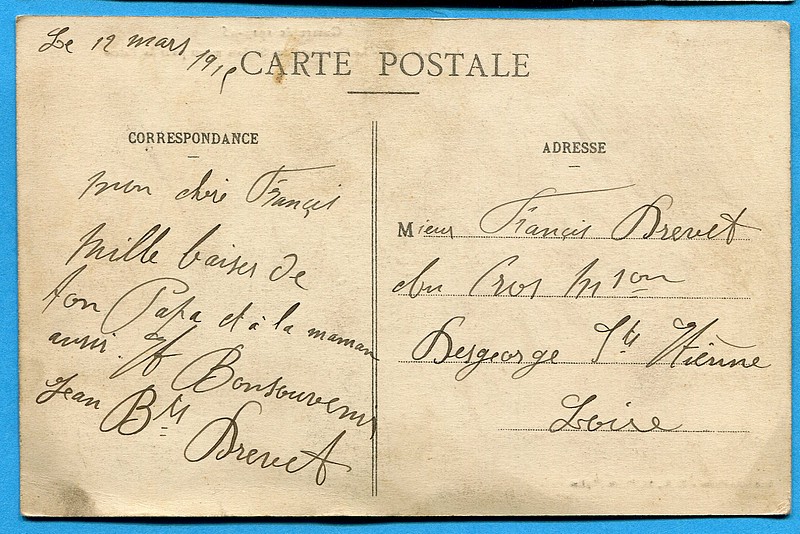 Le 12 mars 1915
CARTE POSTALE
CORRESPONDANCE
mon chèrè Françis
Mille baiser de
ton Papa et à la maman
aussi. Bonsouvenir
Jean Bte Drevet
ADRESSE
Mieur Françis Drevet
du Cros mson
Desgeorge St Etiènne
Loire